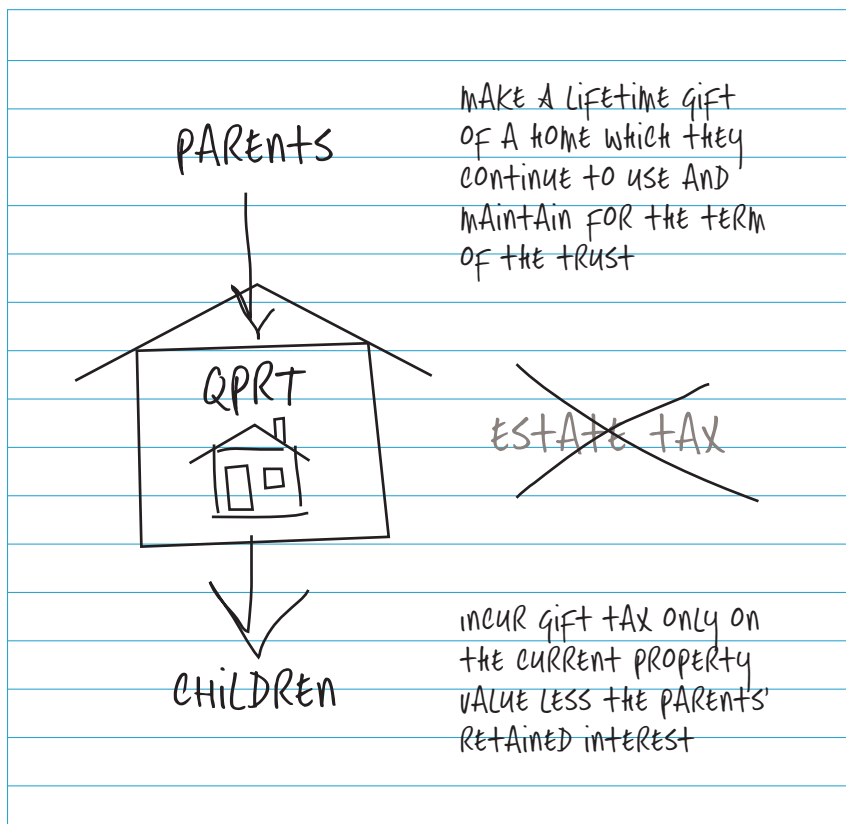 PARENTS
MAKE A LIFETIME GIFT
OF A HOME WHICH THEY
CONTINUE TO USE AND
MAINTAIN FOR THE TERM
OF THE TRUST
QPRT
ESTATE TAX
CHILDREN
INCUR GIFT TAX ONLY ON
THE CURRENT PROPERTY
VALUE LESS THE PARENTS'
RETAINED INTEREST